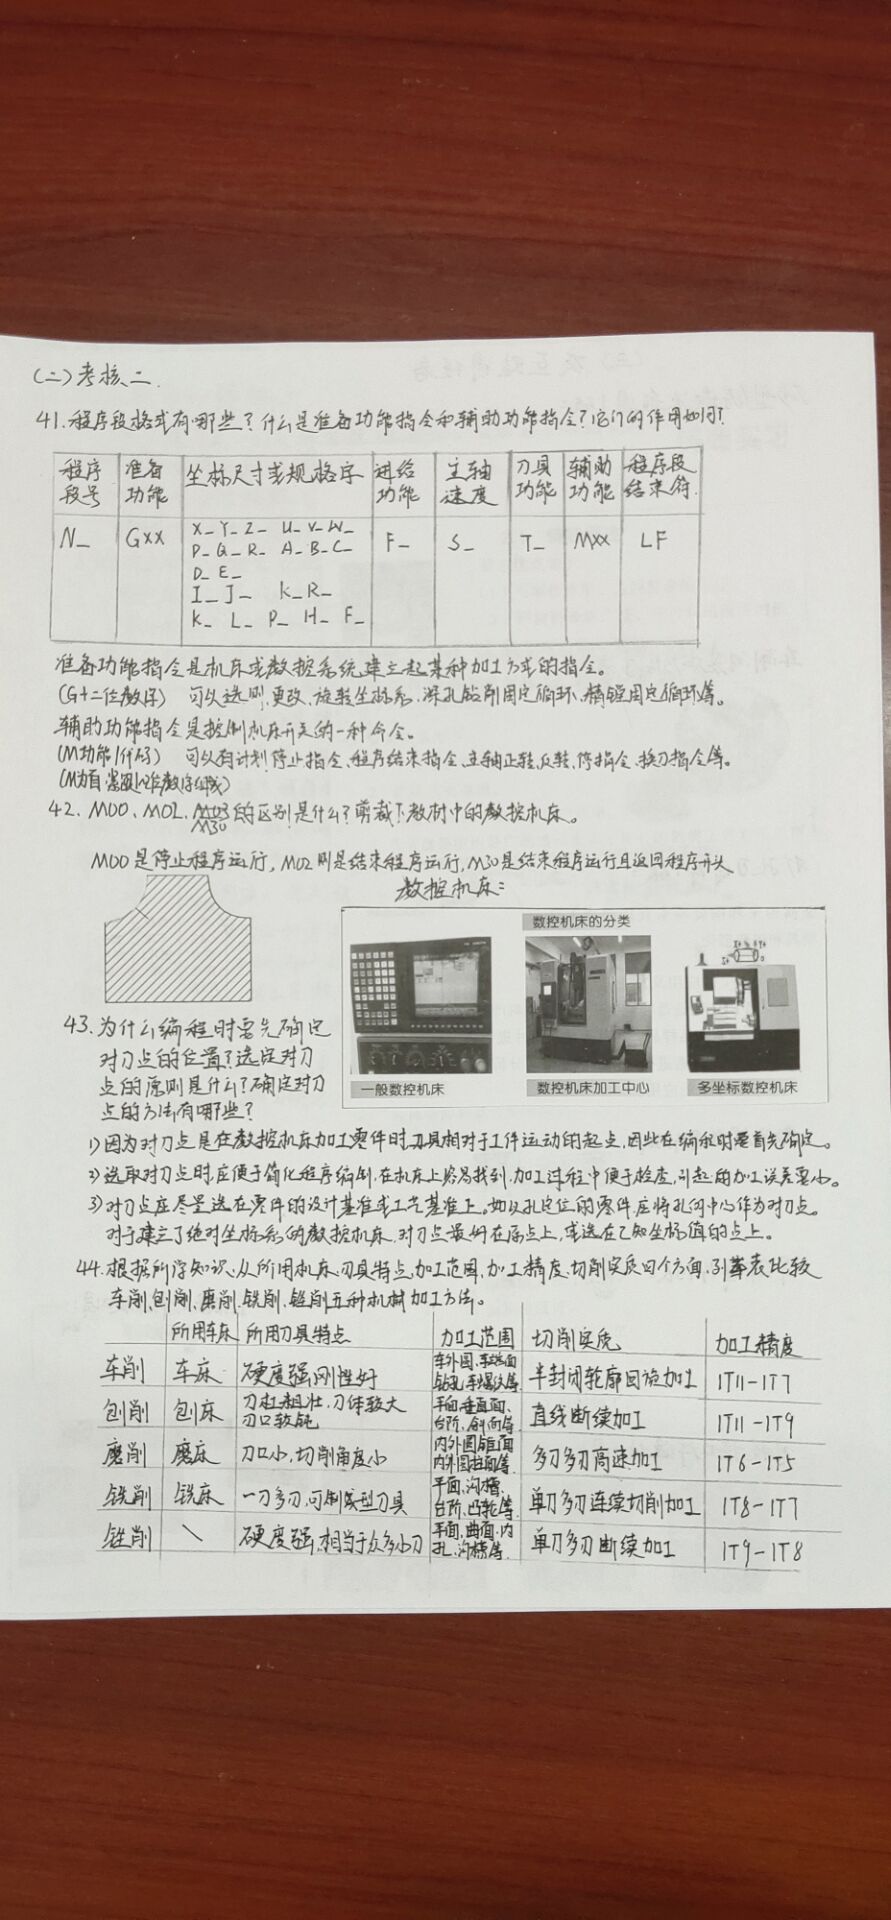 (二)考核二.
41.程序段格式有哪些?什么是准备功能指令和辅助功能指令?它们的作用如何?
程序段号 准备功能 坐标尺寸或规格字 进给功能 主轴速度 刀具功能 辅助功能 程序段结束符.
N_ GXX X_Y_Z_ U_V_W_ F_ S_ T_ MXX LF
P_Q_R_ A_B_C_
D_E_
I_J_ K_R_
K_ L_ P_ H_ F_
准备功能指令是机床或数控系统建立起某种加工方式的指令。
(G+二位数字) 可以选则、更改、旋转坐标系、深孔钻削固定循环、精镗固定循环等。
辅助功能指令是控制机床开关的一种命令。
(M功能/代码) 可以有计划停止指令、程序结束指令、主轴正转、反转、停指令、换刀指令等。
42. M00、M02、M03 M30的区别是什么?剪裁下教材中的数控机床。
M00是停止程序运行,M02则是结束程序运行,M30是结束程序运行且返回程序开头
数控机床:
数控机床的分类
一般数控机床 数控机床加工中心 多坐标数控机床
43.为什么编程时要先确定
对刀点的位置?选定对刀
点的原则是什么?确定对刀
点的方法有哪些?
1)因为对刀点是在数控机床加工零件时,刀具相对于工件运动的起点,因此在编程时要首先确定。
2)选取对刀点时,应便于简化程序编制,在机床上容易找到,加工过程中便于检查,引起的加工误差要小。
3)对刀点应尽量选在零件的设计基准或工艺基准上。如以孔定位的零件,应将孔的中心作为对刀点。
对于建立了绝对坐标系的数控机床,对刀点最好在原点上,或选在已知坐标值的点上。
44.根据所学知识,从所用机床、刀具特点、加工范围、加工精度、切削实质四个方面,列革表比较
车削、刨削、磨削、铣削、锉削五种机械加工方法。
所用车床 所用刀具特点 加工范围 切削实质 加工精度
车削 车床 硬度强,刚性好 车外圆、车端面 钻孔、车螺纹等. 半封闭轮廓回旋加工 IT11-IT7
刨削 刨床 刀杠粗壮、刀体较大 刀口较钝 平面、垂直面、台阶、斜面等. 直线断续加工 IT11-IT9
磨削 磨床 刀口小,切削角度小 内外圆锥面 内外圆柱面等. 多刀多刃高速加工 IT6-IT5
铣削 铣床 一刀多刃,可制成型刀具 平面、沟槽、台阶、凸轮等. 单刀多刃连续切削加工 IT8-IT7
锉削 \ 硬度强,相当于众多小刀 平面、曲面、内孔、沟槽等. 单刀多刃断续加工 IT9-IT8